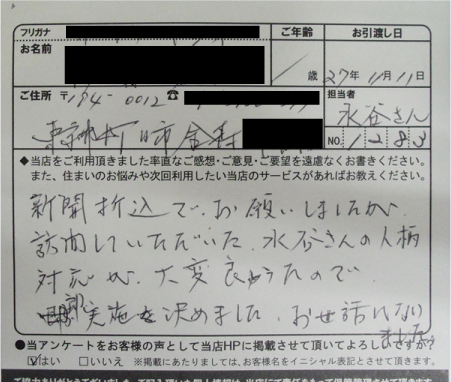 フリガナ ご年齢 お引渡し日
お名前 歳 27年 11月 11日
ご住所 〒194-0012 ☎ 担当者
東京都町田市金森 水谷さん
NO. 1283
◆当店をご利用頂きました率直なご感想・ご意見・ご要望を遠慮なくお書きください。
また、住まいのお悩みや次回利用したい当店のサービスがあればお教えください。
新聞折込で、お願いしましたが、
訪問していただいた、水谷さんの人柄
対応が、大変良かったので
実施を決めました。お世話になり
ました。
●当アンケートをお客様の声として当店HPに掲載させて頂いてよろしいですか?
☑はい □いいえ ※掲載にあたりましては、お客様名をイニシャル表記とさせて頂きます。